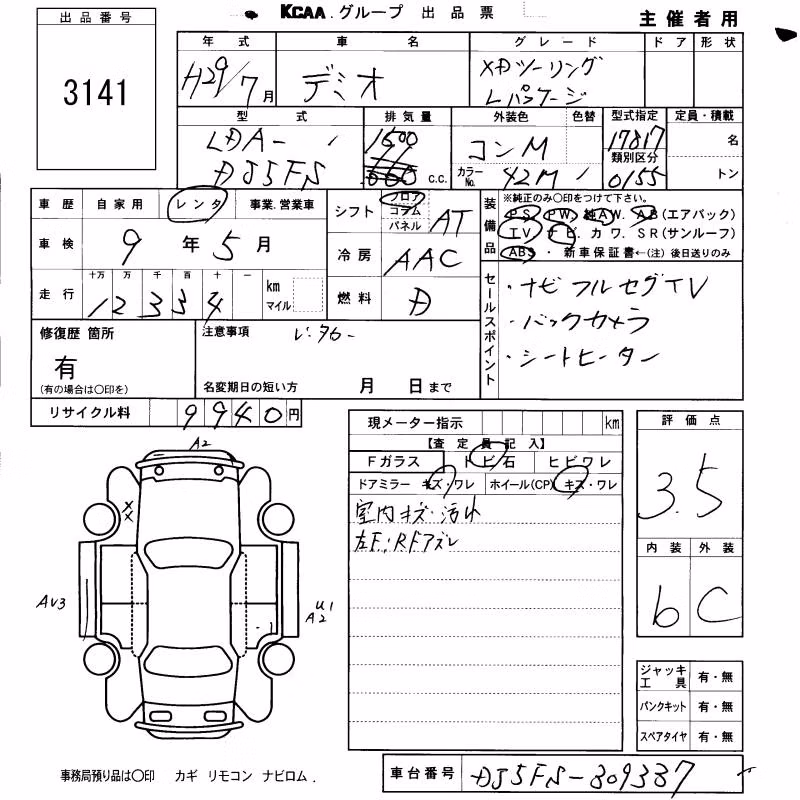 KCAA.グループ 出品票
主催者用
出品番号
3141
年式 車名 グレード ドア 形状
H29/7月 デミオ XDツーリング
Lパッケージ
型式 排気量 外装色 色替 型式指定 定員・積載
LDA- 1500 コンM 17817 名
類別区分
DJ5FS c.c. カラーNo. 42M 0155 トン
車歴 自家用 レンタ 事業.営業車
車検 9年5月
走行 十万 万 千 百 十 一
12334 km
マイル
シフト フロア
コラム
パネル
AT
冷房 AAC
燃料 D
装備品
※純正のみ○印をつけて下さい。
PS PW. 純AW. AB(エアバック)
TV ナビ. カワ. SR(サンルーフ)
ABS ・ 新車保証書←(注)後日送りのみ
セールスポイント
・ナビ フルセグTV
・バックカメラ
・シートヒーター
修復歴 箇所
有
(有の場合は○印を)
注意事項
名変期日の短い方 月 日まで
リサイクル料 9940円
現メーター指示 km
【査定員記入】
Fガラス トビ石 ヒビワレ
ドアミラー キズ・ワレ ホイール(CP) キズ・ワレ
室内キズ・汚レ
左F,RFアズレ
評価点
3.5
内装 外装
b C
A2
X
X
AV3
U1
A2
ジャッキ
工具 有・無
パンクキット 有・無
スペアタイヤ 有・無
事務局預り品は○印 カギ リモコン ナビロム.
車台番号 DJ5FS-309337